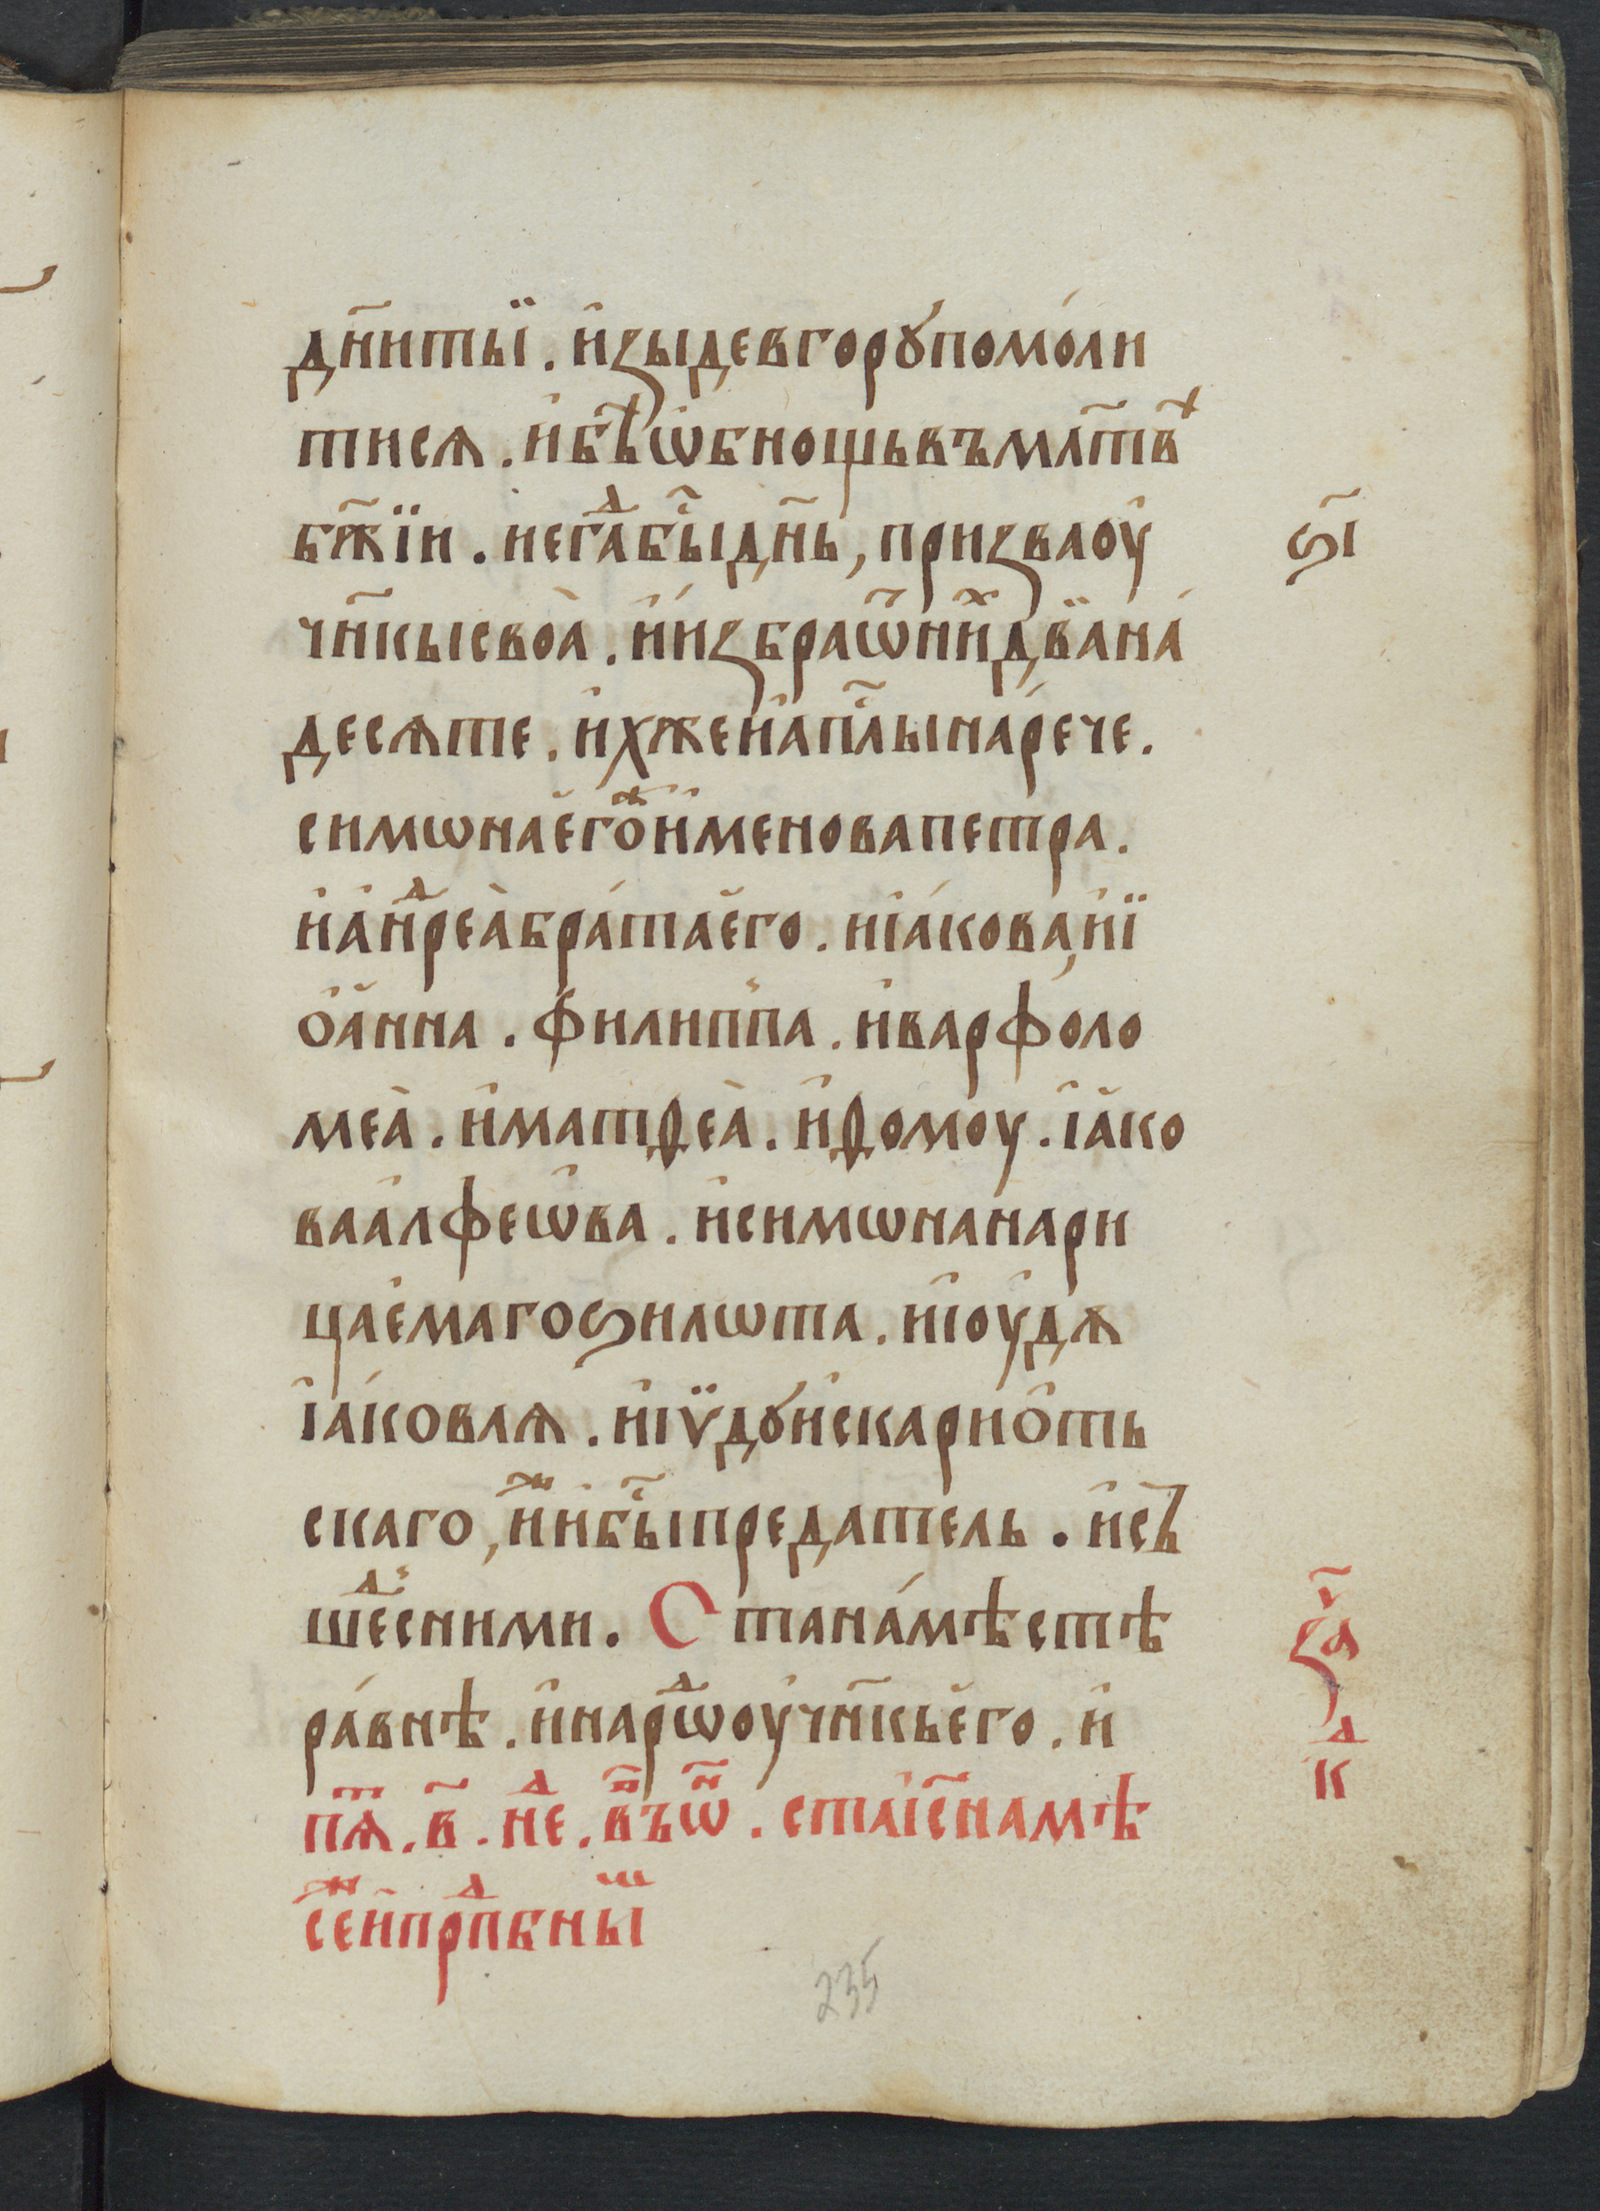 дн҃и ты̏ . и҆зыде в горꙋ помо́ли
тися . и҆ бѣ̀ ѡ҆бнощь въ мл҃твѣ
бж҃їи . и є҆гда̀ бы́сть дн҃ь, призва оу҆
чн҃кы своа̀ . и҆ и҆збра ѿ ни́х два на́
десѧте . и҆хже и҆ а҆пⷭ҇лы наре́че .
симѡна є҆го́ж и҆менова петра .
и҆ а҆ндⷬ҇еа̀ бра́та є҆го . и і҆а́кова, и і҆
ѡ҆а́нна . филиппа . и҆ варфоло
меа̀ . и҆ матѳеа̀ . и҆ ѳомоу . і҆а҆ко
ва а҆лфеѡ҆ва . и҆ симѡна нари
цае҆маго ѕилѡта . и҆ і҆оу҆дѧ
і҆а́ковлѧ . и҆ і҆ѵ̈дꙋ и҆скарио҆ть
скаго, и҆́же и҆ бы́сть предатель . и҆ съ
ше́дъ с ними . Ста на́ мѣстѣ
ра́внѣ . и҆ наро́д оу҆чн҃кь є҆го . и҆
пѧ҃т . в҃ . нед . в҃ ъ ѿ . ста і҆с҃ на мѣ
се́ж и҆ прⷣпбны̏ш
ѕ҃і
за҃ч
к҃д
235